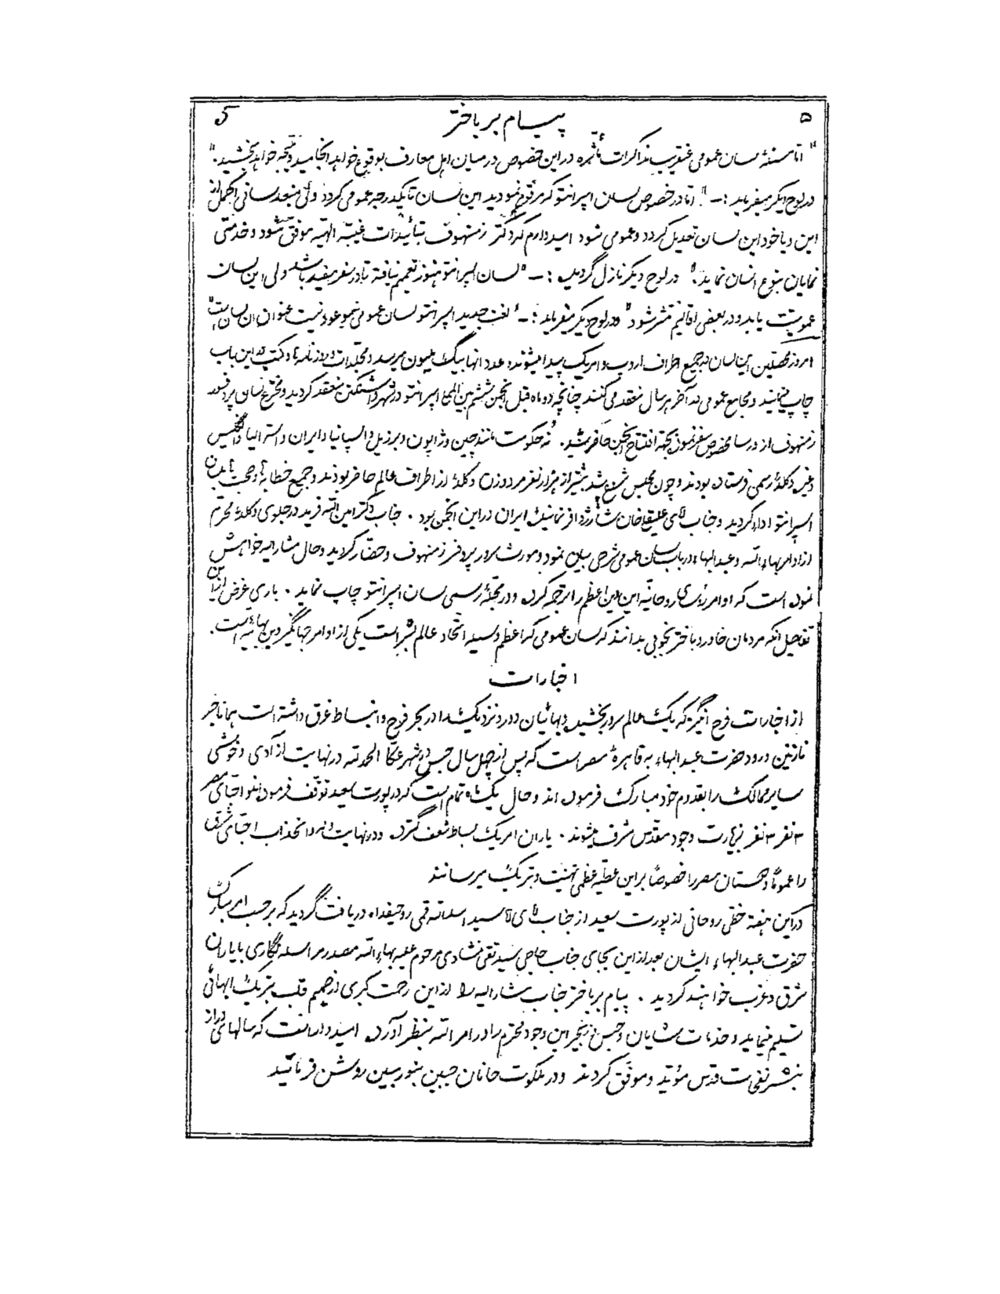 ۵ پیام بر باختر 5
" اما مسئلۀ لسان عمومی عنقریب مذاکرات تامّه در این خصوص در میان اهل معارف بوقوع خواهد انجامید و نتیجه خواهد بخشید. "
در لوح دیگر میفرماید :– " اما در خصوص لسان اسپرانتو که مرقوم نمودید این لسان تا یکدرجه عمومی گردد ولی من بعد لسانی اکملتر از
این و یا خود این لسان تعدیل گردد و عمومی شود امیدوارم که دکتر زمنهوف بتأییدات غیبیّه الهیّه موفق شود و خدمتی
نمایان بنوع انسان نماید. " در لوح دیگر نازل گردید :– " لسان اسپرانتو هنوز تعمیم نیافته تا در سفر مفید باشد ولی این لسان
عمومیّت یابد و در بعضی اقالیم منتشر شود " در لوح دیگر میفرماید :– " لغت جدید اسپرانتو لسان عمومی موعود نیست عنوان آن لسان است "
امروز محصّلین این لسان در جمیع اطراف اروپ و امریک پیدا میشوند و عدد آنها بیک ملیون میرسد و مجلّدات و روزنامه‌ها و کتب در این باب
چاپ مینمایند و مجامع عمومی مذاکره هر سال منعقد می‌کنند چنانچه دو ماه قبل انجمن ششم بین المللی اسپرانتو در شهر واشنگتن منعقد گردید و مخترع لسان پروفسور
زمنهوف از روسا مخصوص سفر نمود بجهة افتتاح انجمن حاضر شد . نه حکومت مانند چین و ژاپون و برزیل و اسپانیا و ایران و استرالیا و انگلیس
و غیره وکلاء رسمی فرستاده بودند و چون مجلس شروع شد بیشتر از هزار نفر مرد و زن و وکلاء از اطراف عالم حاضر بودند و جمیع خطابه‌ها و صحبت‌ها بلسان
اسپرانتو ادا گردید و جناب آقای علیقلیخان شارژدافر نماینده ایران در این انجمن بود . جناب دکتر امین الله فرید در جلوی وکلاء محترم
از اوامر بهاءالله و عبدالبهاء در باب لسان عمومی شرحی بیان نمود و مورث سرور پروفسر زمنهوف و حضّار گردید و حال مشارالیه خواهش
نموده است که اوامر روحانیه این دین اعظم را ترجمه کرده و در مجلّۀ رسمی لسان اسپرانتو چاپ نماید . باری غرض از این
تفاصیل آنکه مردمان خاور و باختر بخوبی بدانند که لسان عمومی که اعظم وسیلۀ اتحاد عالم بشر است یکی از اوامر جهانگیر دین بهائی است .
اخبارات
از اخبارات فرح انگیز که یک عالم سرور بخشید و بهائیان دور و نزدیک را در بحر فرح و انبساط غرق داشته است همانا خبر
نازنین ورود حضرت عبدالبهاء به قاهرۀ مصر است که پس از چهل سال حبس در شهر عکّا الحمدلله در نهایت آزادی و خوشی
سایر ممالک را بقدوم خود مبارک فرموده اند و حال یکماه تمام است که در پورت سعید توقّف فرموده اند و احبّای مصر
۳ نفر ۳ نفر بزیارت وجود مقدّس مشرف میشوند . یاران امریک بساط شعف گسترده و در نهایت وله و انجذاب احبّای شرق
را عموماً و دوستان مصر را خصوصاً بر این عطیّه عظمی تهنیت و تبریک میرسانند
در این هفته خطّی روحانی از پورت سعید از جناب آقای سید اسدالله قمی روحیفداه دریافت گردید که بر حسب امر مبارک
حضرت عبدالبهاء ایشان بعد از این بجای جناب حاجی سید تقی منشادی مرحوم علیه بهاءالله مصدر مراسله نگاری با یاران
شرق و غرب خواهند گردید . پیام بر باختر جناب مشارالیه را از این رحمت کبری از صمیم قلب تبریک ابهائی
تسلیم مینماید و خدمات شایان و حبس و زنجیر این وجود محترم را در امر الله بنظر آورده امیدوار است که سالهای دراز
بنشر نفحات قدس مؤیّد و موفّق گردند و در ملکوت جانان جبین بنور مبین روشن فرمائید